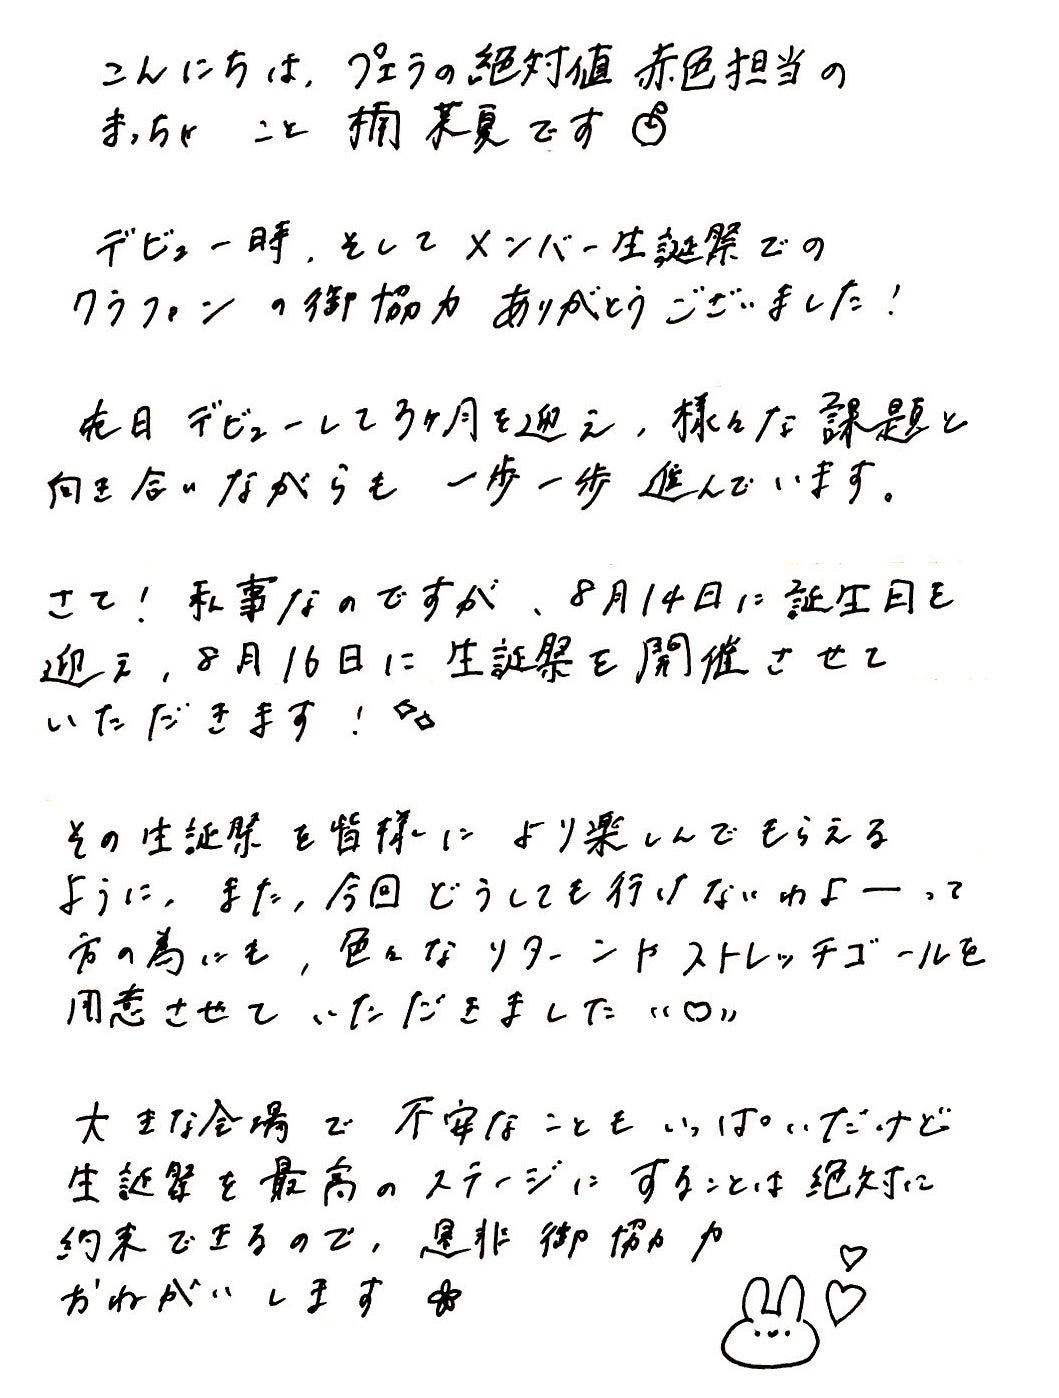 こんにちは、プェラの絶対値 赤色担当の
まっちゃ こと 楠 菜夏です
デビュー時、そして メンバー生誕祭での
クラファン の御協力 ありがとうございました！
先日 デビューして3ヶ月を迎え、様々な課題と
向き合いながらも 一歩一歩 進んでいます。
さて！私事なのですが、8月14日に誕生日を
迎え、8月16日に 生誕祭を開催させて
いただきます！
その生誕祭を皆様に より楽しんでもらえる
ように、また、今回どうしても行けないわよーって
方の為にも、色々なリターンやストレッチゴールを
用意させて いただきました
大きな会場で 不安なことも いっぱいだけど
生誕祭を最高のステージにすることは絶対に
約束できるので、是非 御協力
おねがいします